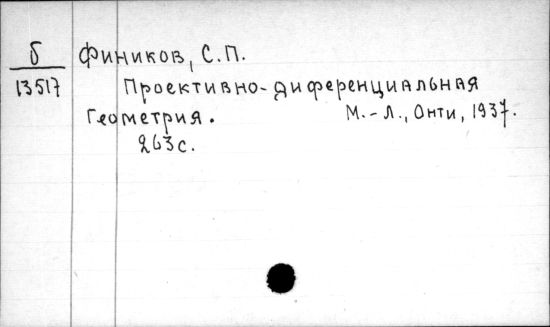 Б
13517
Фиников, С.П.
Проективно-диференциальная
Геометрия. М.-Л., Онти, 1937.
263с.